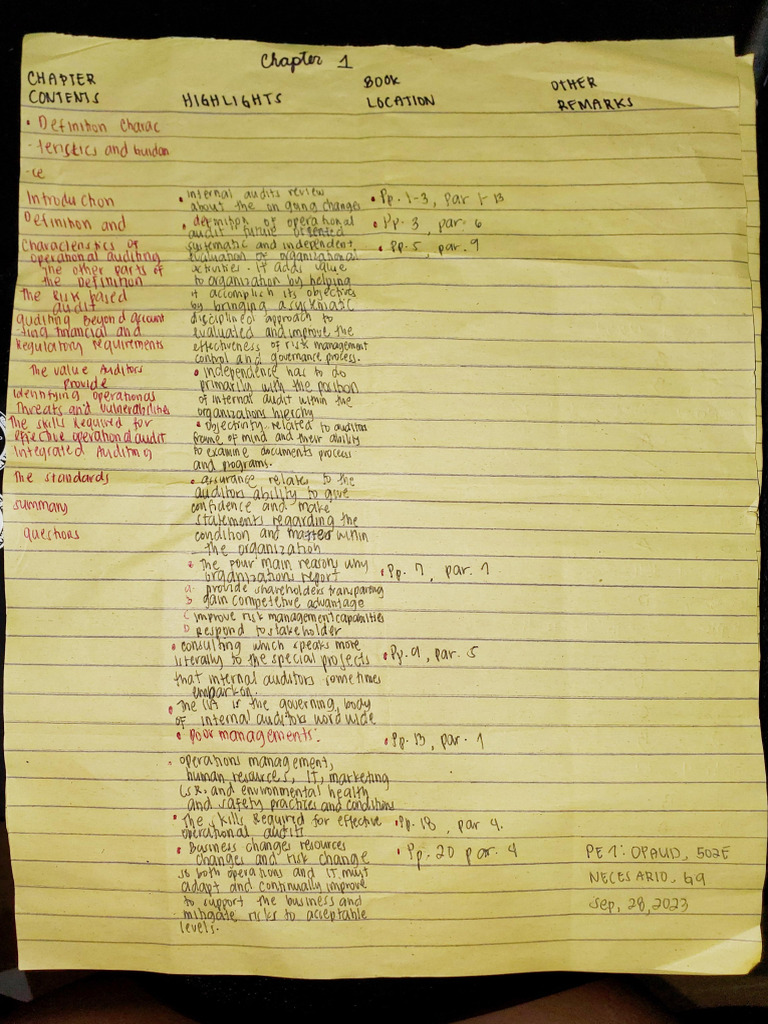 Chapter 1
CHAPTER CONTENTS
HIGHLIGHTS
BOOK LOCATION
OTHER REMARKS
• Definition Charac
-teristics and Guidan
-ce
Introduction
Definition and
Characteristics of
operational auditing
The other parts of
the Definition
The Risk based
audit
auditing Beyond account
ting financial and
Regulatory requirements
The value Auditors
Provide
Identifying operational
Threats and vulnerabilities
The skills Required for
effective operational audit
Integrated Auditing
The standards
summary
questions
• internal audits review
about the on going changes
• definition of operational
audit future oriented
systematic and independent
evaluation of organizational
activities. it adds value
to organization by helping
it accomplish its objectives
by bringing a systematic
disciplined approach to
evaluated and improve the
effectiveness of risk management
control and governance process.
• independence has to do
primarily with the position
of internal audit within the
organizations hierchy
• objectivity related to auditors
frame of mind and their ability
to examine documents process
and programs.
• assurance relates to the
auditors ability to give
confidence and make
statements regarding the
condition and matters within
the organization
• The four main reasons why
organizations report
a. provide shareholders transparting
B gain competetive advantage
C improve risk management capabilities
D Respond to stakeholder
• consulting which speaks more
literally to the special projects
that internal auditors sometimes
embarkon.
• The IIA is the governing body
of internal auditors word wide
• Poor managements:
• operations management,
human resources, IT, marketing
and environmental health
and safety practices and conditions
• The skills Required for effective
operational audit
• Business changes resources
changes and risk change
so both operations and IT must
adapt and continually improve
to support the business and
mitigate risks to acceptable
levels.
• Pp. 1-3, Par 1-13
• Pp. 3, par. 6
• Pp. 5, par. 9
• Pp. 7, par. 1
• Pp. 9, par. 5
• Pp. 13, par. 1
• Pp. 18, par 4.
• Pp. 20 par. 4
PE 1: OPAUD, 502E
NECESARIO, G9
Sep, 28, 2023